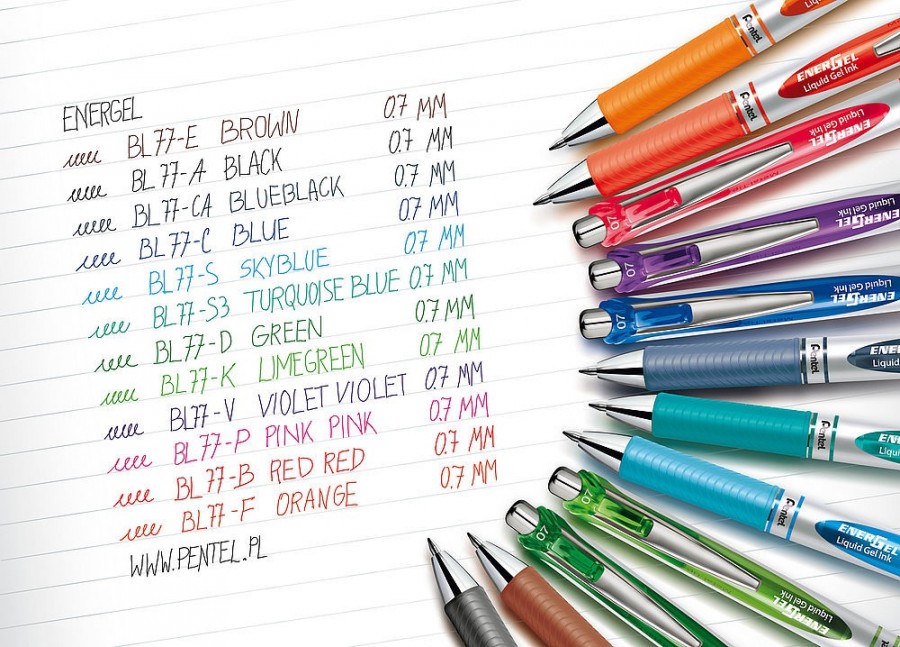 ENERGEL
BL77-E BROWN 0.7 MM
BL77-A BLACK 0.7 MM
BL77-CA BLUEBLACK 0.7 MM
BL77-C BLUE 0.7 MM
BL77-S SKYBLUE 0.7 MM
BL77-S3 TURQUOISE BLUE 0.7 MM
BL77-D GREEN 0.7 MM
BL77-K LIMEGREEN 0.7 MM
BL77-V VIOLET VIOLET 0.7 MM
BL77-P PINK PINK 0.7 MM
BL77-B RED RED 0.7 MM
BL77-F ORANGE 0.7 MM
WWW.PENTEL.PL
Pentel
Pentel
ENERGEL
Liquid Gel Ink
ENERGEL
Liquid Gel Ink
07
ENERGEL
Liquid Gel Ink
07
ENERGEL
Liquid Gel Ink
07
Pentel
ENE
Liquid
Pentel
ENE
Liqui
Pentel
ENERGEL
Liquid Gel Ink
07
ENERGEL
Liquid Gel Ink
07